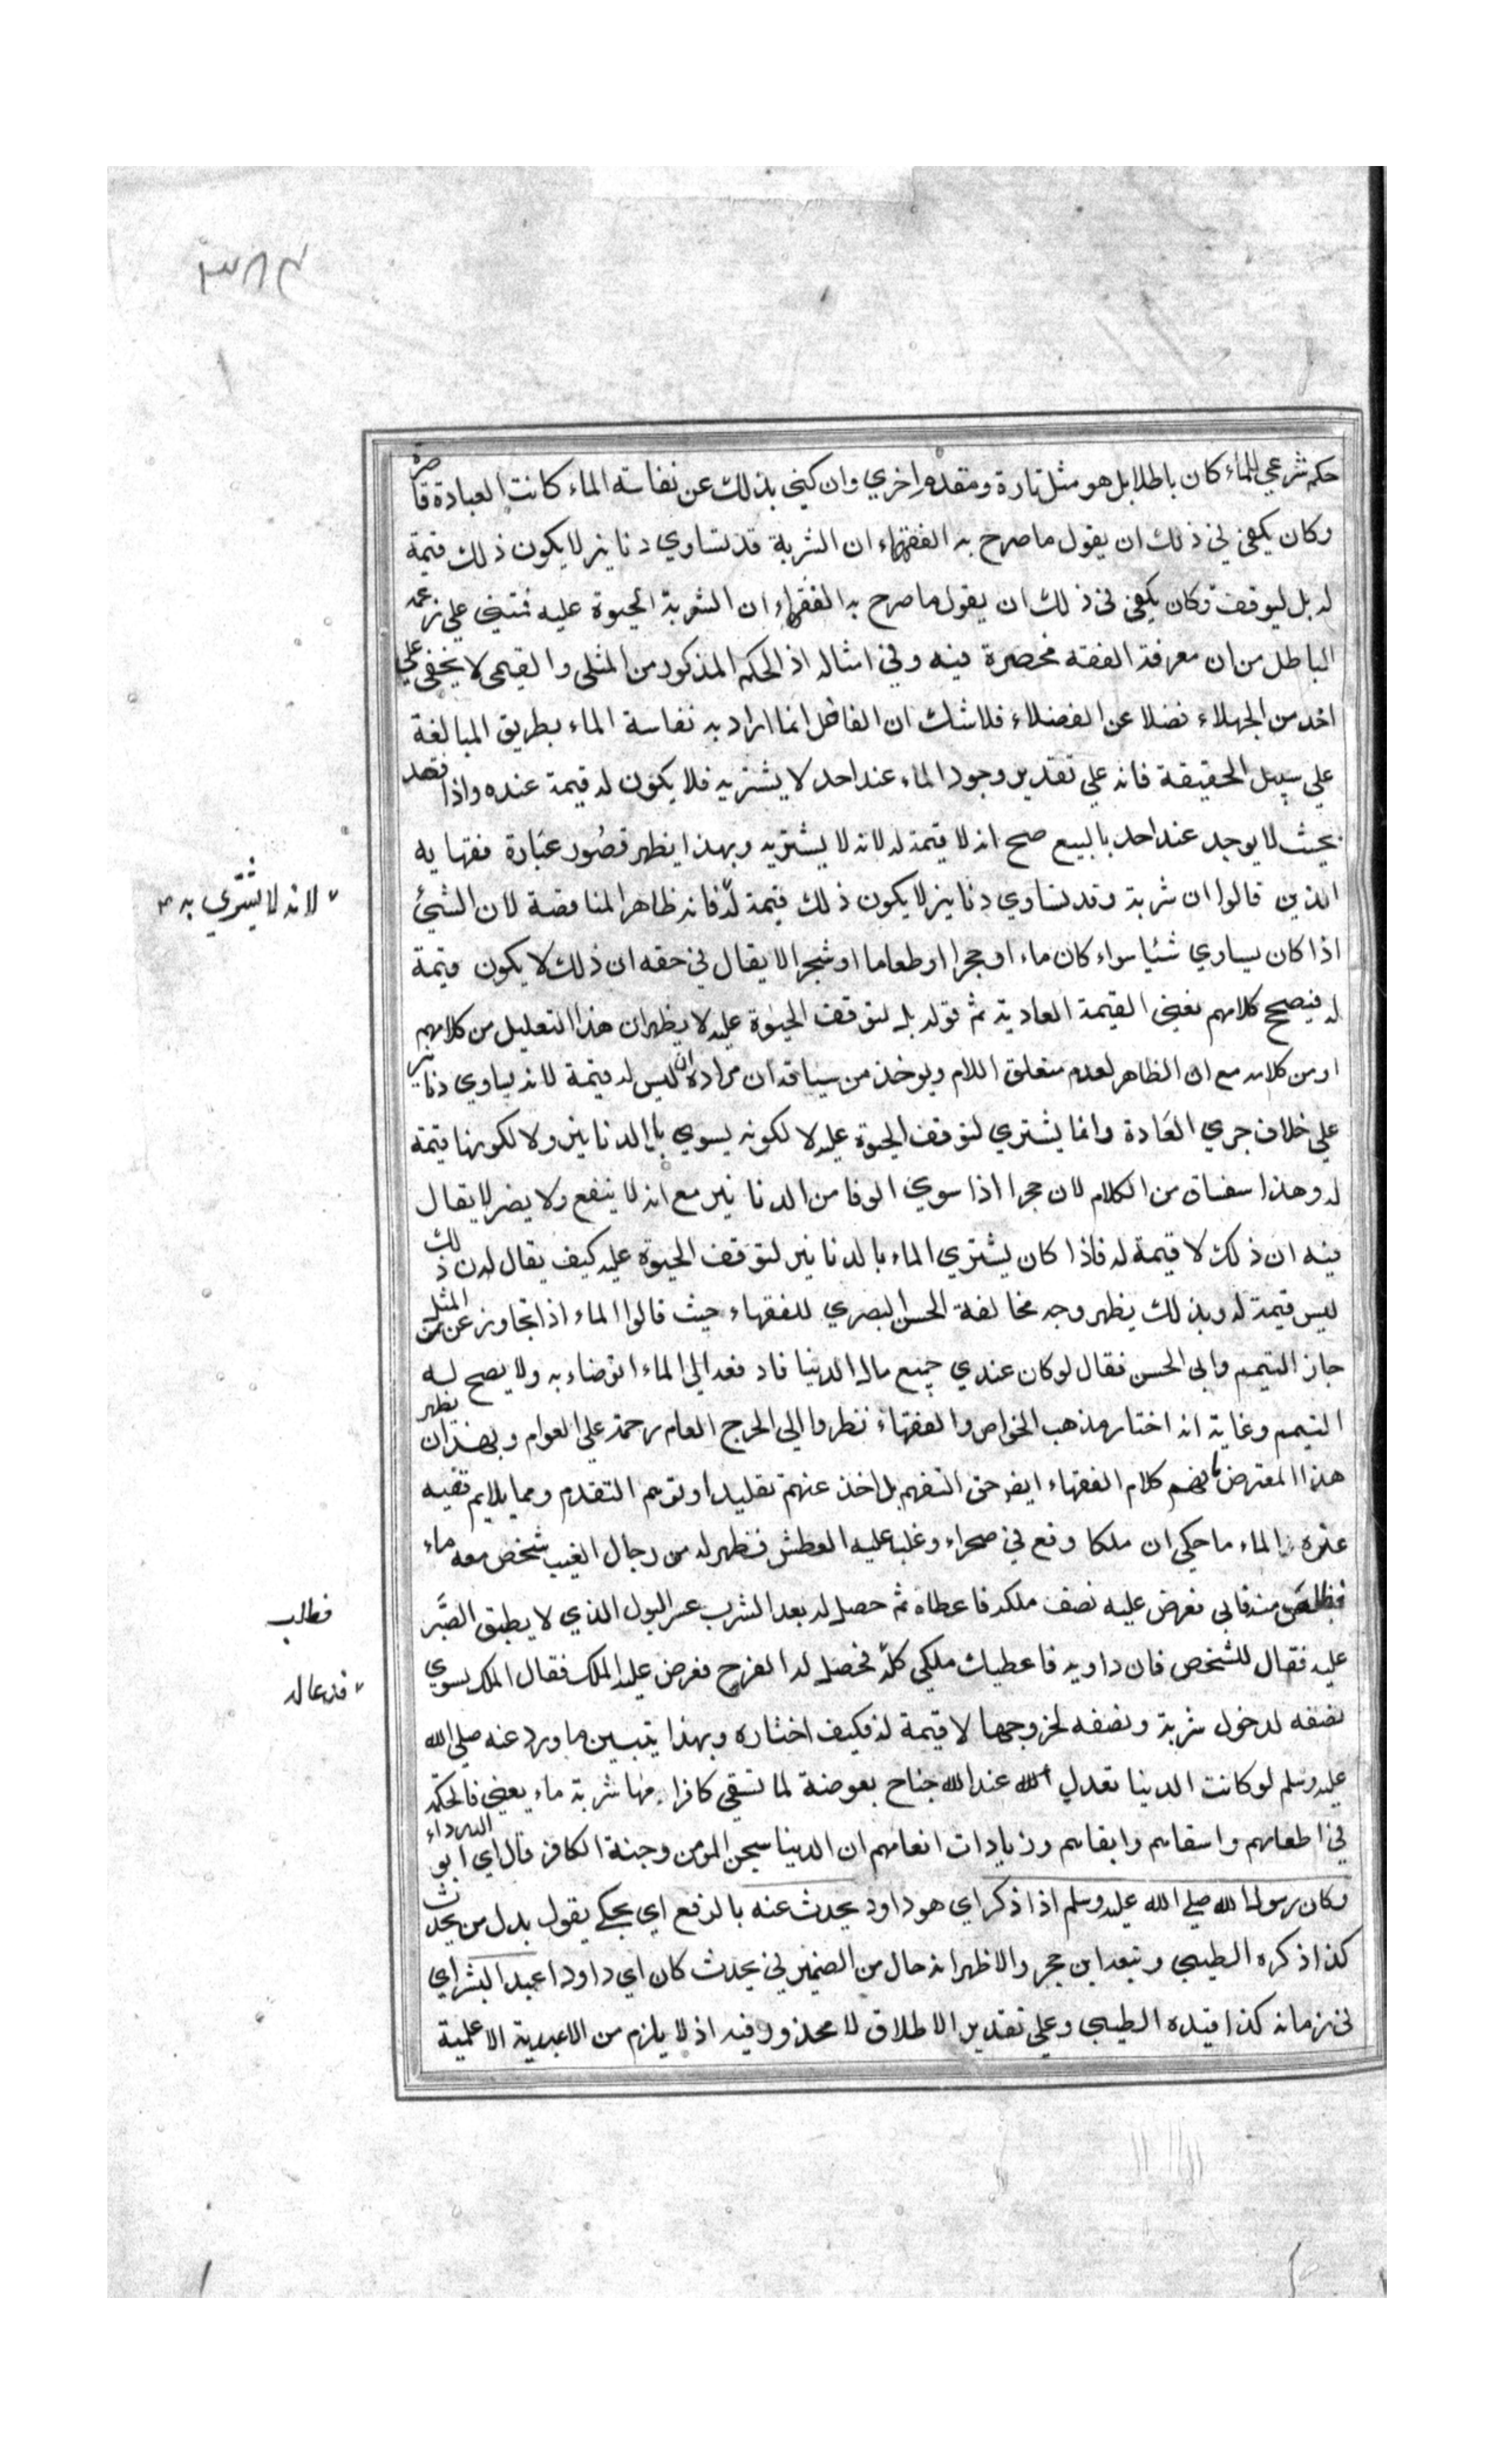 ٣٨٤
حكم شرعي للماء كان باطلا بل هو مثل تارة ومتقدم اخري وان كني بذلك عن نفاسة الماء كانت العبادة قاصرة
وكان يكفي في ذلك ان يقول ما صرح به الفقهاء ان الشربة قد تساوي دنانيز لا يكون ذلك قيمة
له بل ليوقف وكان يكفي في ذلك ان يقول ما صرح به الفقهاء ان الشربة الحيوة عليه فمبني علي زعمه
الباطل من ان معرفة الفقه محصرة فيه وفي امثاله اذ الحكم المذكور من المثلي والقيمي لا يخفي علي
احد من الجهلاء فضلا عن الفضلاء فلا شك ان الفاضل انما اراد به نفاسة الماء بطريق المبالغة
علي سبيل الحقيقة فانه علي تقدير وجود الماء عند احد لا يشتريه فلا يكون له قيمة عنده واذا فقد
بحيث لا يوجد عند احد بالبيع صح انه لا قيمة له لانه لا يشتريه وبهذا يظهر قصور عبارة فقهايه
الذين قالوا ان شربة وقد تساوي دنانيز لا يكون ذلك قيمة له فانه ظاهر المناقضة لان الشئ
لانه لا يشتري به
اذا كان يساوي شئيا سواء كان ماء او حجرا او طعاما او شجرا لا يقال في حقه ان ذلك لا يكون قيمة
له فيصح كلامهم بغير القيمة العادية ثم قوله بل لتوقف الحيوة عليه لا يظهر ان هذا التعليل من كلامهم
او من كلامه مع ان الظاهر لعدم متعلق اللام ويوخذ من سياقه ان مراده ان ليس له قيمة لانه يساوي دنانير
علي خلاف جري العادة وانما يشتري لتوقف الحيوة عليه لا لكونه يسوي بالدنانير ولا لكونها قيمة
له وهذا سفساف من الكلام لان حجرا اذا سوي الوفا من الدنانير مع انه لا ينفع ولا يضر لا يقال
فيه ان ذلك لا قيمة له فاذا كان يشتري الماء بالدنانير لتوقف الحيوة عليه كيف يقال له ان ذلك
ليس قيمة له وبذلك يظهر وجه مخالفة الحسن البصري للفقهاء حيث قالوا الماء اذا تجاوز عن ثمن المثل
جاز التيمم وابي الحسن فقال لو كان عندي جميع مال الدنيا فادفعه الي الماء اتوضاء به ولا يصح له
التيمم وغايته انه اختار مذهب الخواص والفقهاء نظروا الي الحرج العام رحمة علي العوام وبهذا يظهر ان
هذا المعترض ما فهم كلام الفقهاء ايضا حق التفهم بل اخذ عنهم تقليدا وتوهم التقدم ومما يلايم قضية
عزة الماء ما حكي ان ملكا وقع في صحراء وغلب عليه العطش فظهر له من رجال الغيب شخص معه ماء
فطلب منه فابي فعرض عليه نصف ملكه فاعطاه ثم حصل له بعد الشرب عسر البول الذي لا يطيق الصبر
فطلب
عليه فقال للشخص فان داويه فاعطيك ملكي كله فحصل له الفرج فعرض عليه الملك فقال الملك يسوي
فدعا له
نصفه لدخول شربة ونصفه لخروجها لا قيمة له فكيف اختاره وبهذا يتبين ما ورد عنه صلي الله
عليه وسلم لو كانت الدنيا تعدل عند الله جناح بعوضة لما تسقي كافرا منها شربة ماء يعني فالحكمة
في اطعامهم واسقائهم وابقائهم وزيادات انعامهم ان الدنيا سجن المومن وجنة الكافر قال اي ابو الدرداء
وكان رسول الله صلي الله عليه وسلم اذا ذكر اي هو داود يحدث عنه بالرفع اي يحكي يقول بدل من يحدث
كذا ذكره الطيبي وتبعه ابن حجر والاظهر انه حال من الضمير في يحدث كان اي داود اعبد البشر اي
في زمانه كذا قيده الطيبي وعلي تقدير الاطلاق لا محذور فيه اذ لا يلزم من الاعبدية الاعلمية